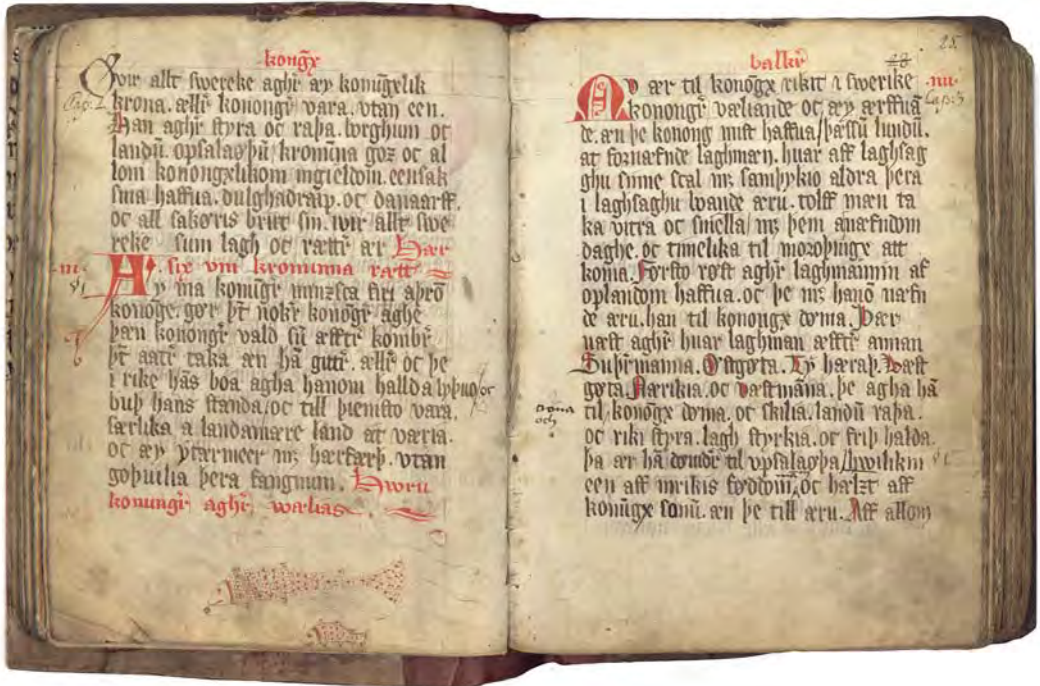 kongx
Ovir allt swereke aghr æy konugxlik
Cap. 2
krona. ællr konongr vara. vtan een.
Han aghr styra oc raþa. borghum oc
landū. opsalaoþū kronūna goz oc al
lom konongxlikom ingieldom. eensak
sina haffua. dulghadraap. oc danaarff.
oc all sakøris brut sin. ivir allt swe
reke sum lagh oc rættr ær Hær
six vm kronunna rætt
·III·
Ay ma konugr minzsca firi aþrō
konoge. gør þt nokr konogr aghe
þæn konongr vald sū æfftr kombr
þt aatr taka æn hā gittr. ællr oc þe
i rike hās boa agha hanom hallda
buþ hans standa/oc till þiensto vara.
særlika a landamære land at væria.
oc æy ytarmeer mz hærfærþ. vtan
goþuilia þera fangnum. Hwru
konungr aghr wælias
balkr
28
25
Nv ær til konōgx rikit i swerike
·IIII·
Cap: 3
konongr væliande oc æy ærffuā
de. æn þe konong mist haffua/þæssū lundū.
at foznæfnde laghmæn. huar aff laghsag
ghu sinne scal mz samþykio aldra þera
i laghsaghu boande æru. tolff mæn ta
ka vitra oc sniella/ mz þem anæfndom
daghe. oc timelika til mozoþinge att
koma. Førsto røst aghr laghmannin af
oplandom haffua. oc þe mz hanō næfn
de æru. han til konongx døma. Þær
næst aghr huar laghman æfftr annan
Suþrmanna. Østgøta. Ty hæraþ. Wæst
gøta. Nærikia. oc væstmāna. þe agha hā
til konōgx døma. oc skilia. landū raþa.
doma
och
oc riki styra. lagh styrkia. oc friþ halda.
þa ær hā dømdr til vpsalaøþa/hwilikin
een aff inrikis føddom oc hælzt aff
konūgx sonū. æn þe till æru. Aff allom